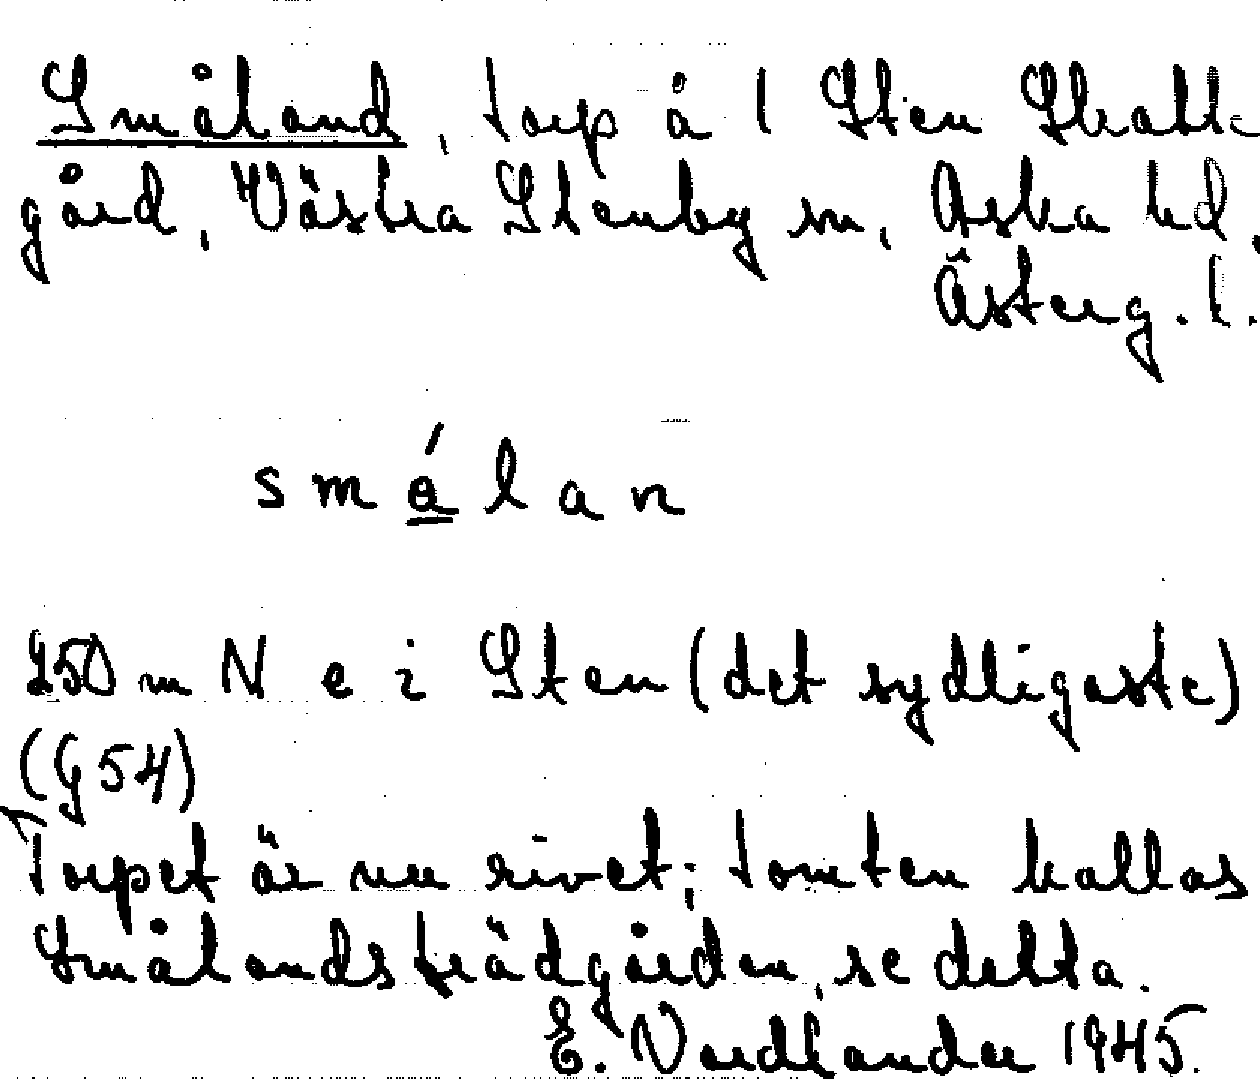 Småland, torp å 1 Sten Skatte-
gård, Västra Stenby sn, Aska hd,
Österg. l.
smálan
250 m N e i Sten (det sydligaste)
(G 54)
Torpet är nu rivet; tomten kallas
Smålandsträdgården, se detta.
E. Nordlander 1945.